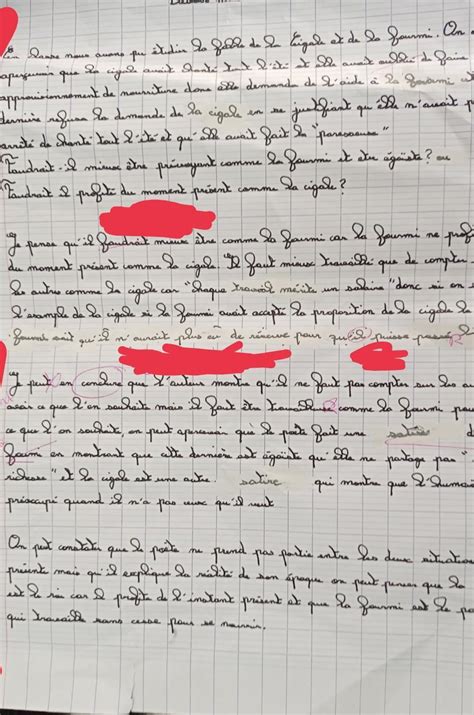 En classe nous avons pu étudier la fable de la Cigale et de la fourmi. On
aperçevais que la cigale avait chanté tout l'été et elle avait oublier de faire
approvisionnement de nourriture donc elle demande de l'aide à la fourmi et
dernière refusa la demande de la cigale en se justifiant qu'elle n'avait p
arrêté de chanté tout l'été et qu'elle avait fait la "paresseuse"
Faudrait-il mieux être prévoyant comme la fourmi et être égoïste? ou
Faudrait il profité du moment présent comme la cigale?
Je pense qu'il faudrait mieux être comme la fourmi car la fourmi ne prof
du moment présent comme la cigale. Il faut mieux travaillé que de compter
les autres comme la cigale car "chaque travail mérite un salaire" donc si on
l'exemple de la cigale si la fourmi avait accepté la proportion de la cigale la
fourmi sait qu'il n'aurait plus eu de réserve pour qu'il puisse passé
Je peut en conclure que l'auteur montre qu'il ne faut pas compter sur les
avoir ce que l'on souhaite mais il faut être travailleur comme la fourmi pou
ce que l'on souhaite, on peut apercevoir que le poète fait une satire d
fourmi en montrant que cette dernière est égoïste qu'elle ne partage pas "
richesse" et la cigale est une autre satire qui montre que l'humai
préoccupé quand il n'a pas ceux qu'il veut
On peut constater que le poète ne prend pas partie entre les deux situation
présent mais qu'il explique la réalité de son époque on peut penser que la
est le roi car il profite de l'instant présent et que la fourmi est le p
qui travaille sans cesse pour se nourrir.